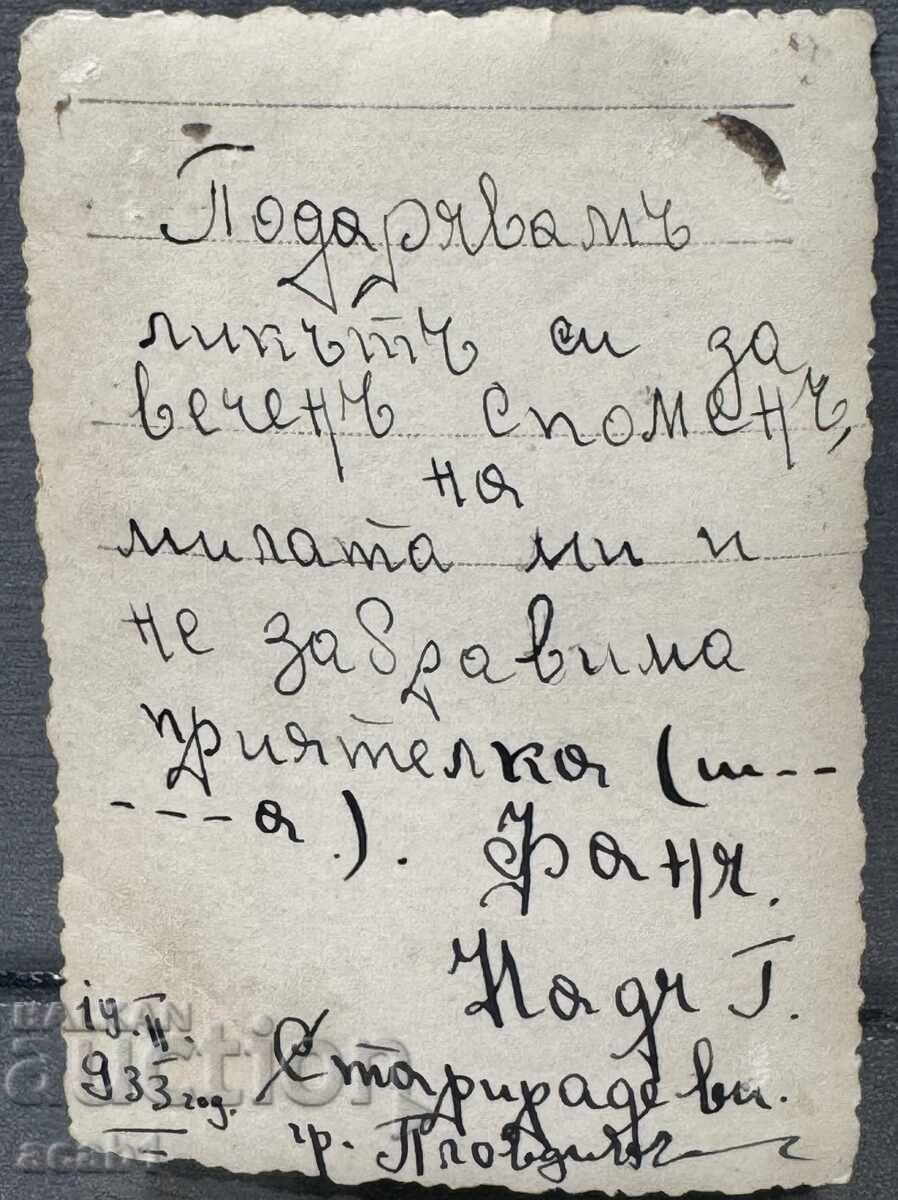 Подарявамъ
ликътъ си за
веченъ споменъ,
на
милата ми и
не забравима
приятелка (ш--
----а.). Фаня.
Надя Г.
19.II.
933 год.
Старирадеви.
гр. Пловдивъ
BALKAN
auction
acab1